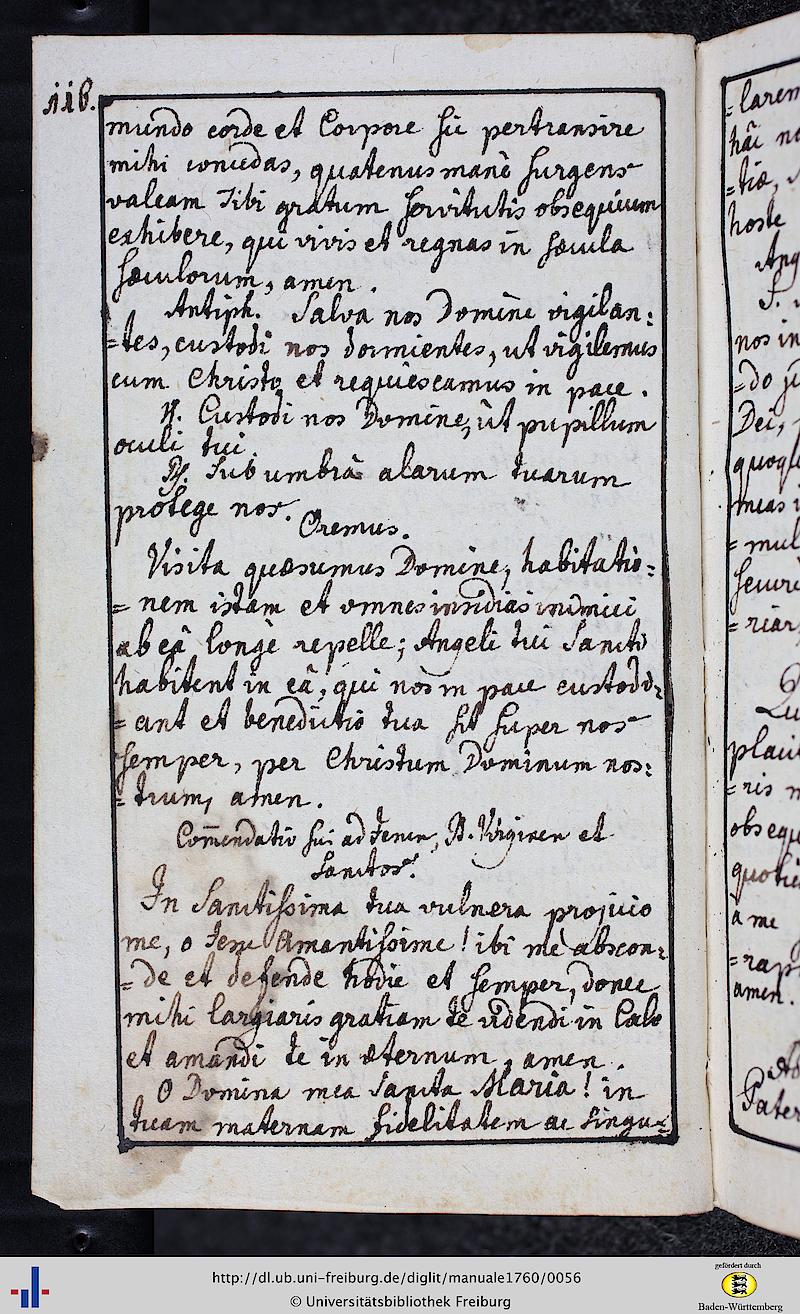 116.
mundo corde et Corpore sic pertransire
mihi concedas, quatenus manè surgens
valeam Tibi gratum servitutis obsequium
exhibere, qui vivis et regnas in sæcula
sæculorum, amen.
Antiph. Salva nos Domine vigilan:
=tes, custodi nos dormientes, ut vigilemus
cum Christo et requiescamus in pace.
℣. Custodi nos Domine, ùt pupillum
oculi tui.
℟. Sub umbrâ alarum tuarum
protege nos.
Oremus.
Visita quæsumus Domine, habitatio:
=nem istam et omnes insidias inimici
ab eâ longè repelle; Angeli tui Sancti
habitent in eâ, qui nos in pace custodi:
=ant et benedictio tua sit super nos
semper, per Christum Dominum nos:
=trum, amen.
Com̅endatio sui ad Jesum, B. Virginem et
Sanctos.
In Sanctissima tua vulnera projicio
me, o Jesu Amantissime! ibi me abscon:
=de et defende hodie et semper, donec
mihi largiaris gratiam te videndi in Cælo
et amandi te in æternum, amen.
O Domina mea Sancta Maria! in
tuam maternam fidelitatem ac singu=
=larem
hâc
=tiæ,
hoste
Ang
S.
nos in
=do
Dei,
quoqu
meas
=mul
secur
=riar
placi
=ris
obsequ
quoti
à me
=rap
amen.
Pater
http://dl.ub.uni-freiburg.de/diglit/manuale1760/0056
© Universitätsbibliothek Freiburg
gefördert durch
Baden-Württemberg